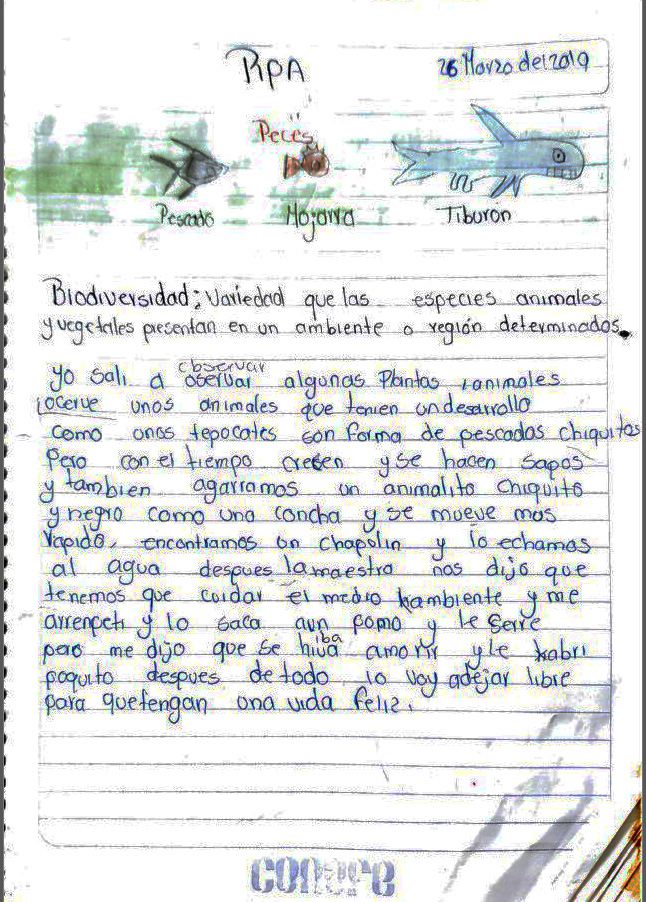 RPA
26 Marzo del 2019
Peces
Pescado
Mojarra
Tiburon
Biodiversidad: Variedad que las especies animales
y vegetales presentan en un ambiente o región determinados.
observar
yo sali a oservar algunas Plantas ianimales
iocerve unos animales que tenien un desarrollo
como unos tepocates son forma de pescados chiquitos
Pero con el tiempo crecen y se hacen sapos
y tambien agarramos un animalito chiquito
y negro como una concha y se mueve mas
rapido, encontramos un chapolin y lo echamos
al agua despues la maestra nos dijo que
tenemos que cuidar el medio hambiente y me
arrenpeti y lo saca aun pomo y le serre
iba
pero me dijo que se hiba amorir y le habri
poquito despues de todo lo voy adejar libre
para que tengan una vida feliz.